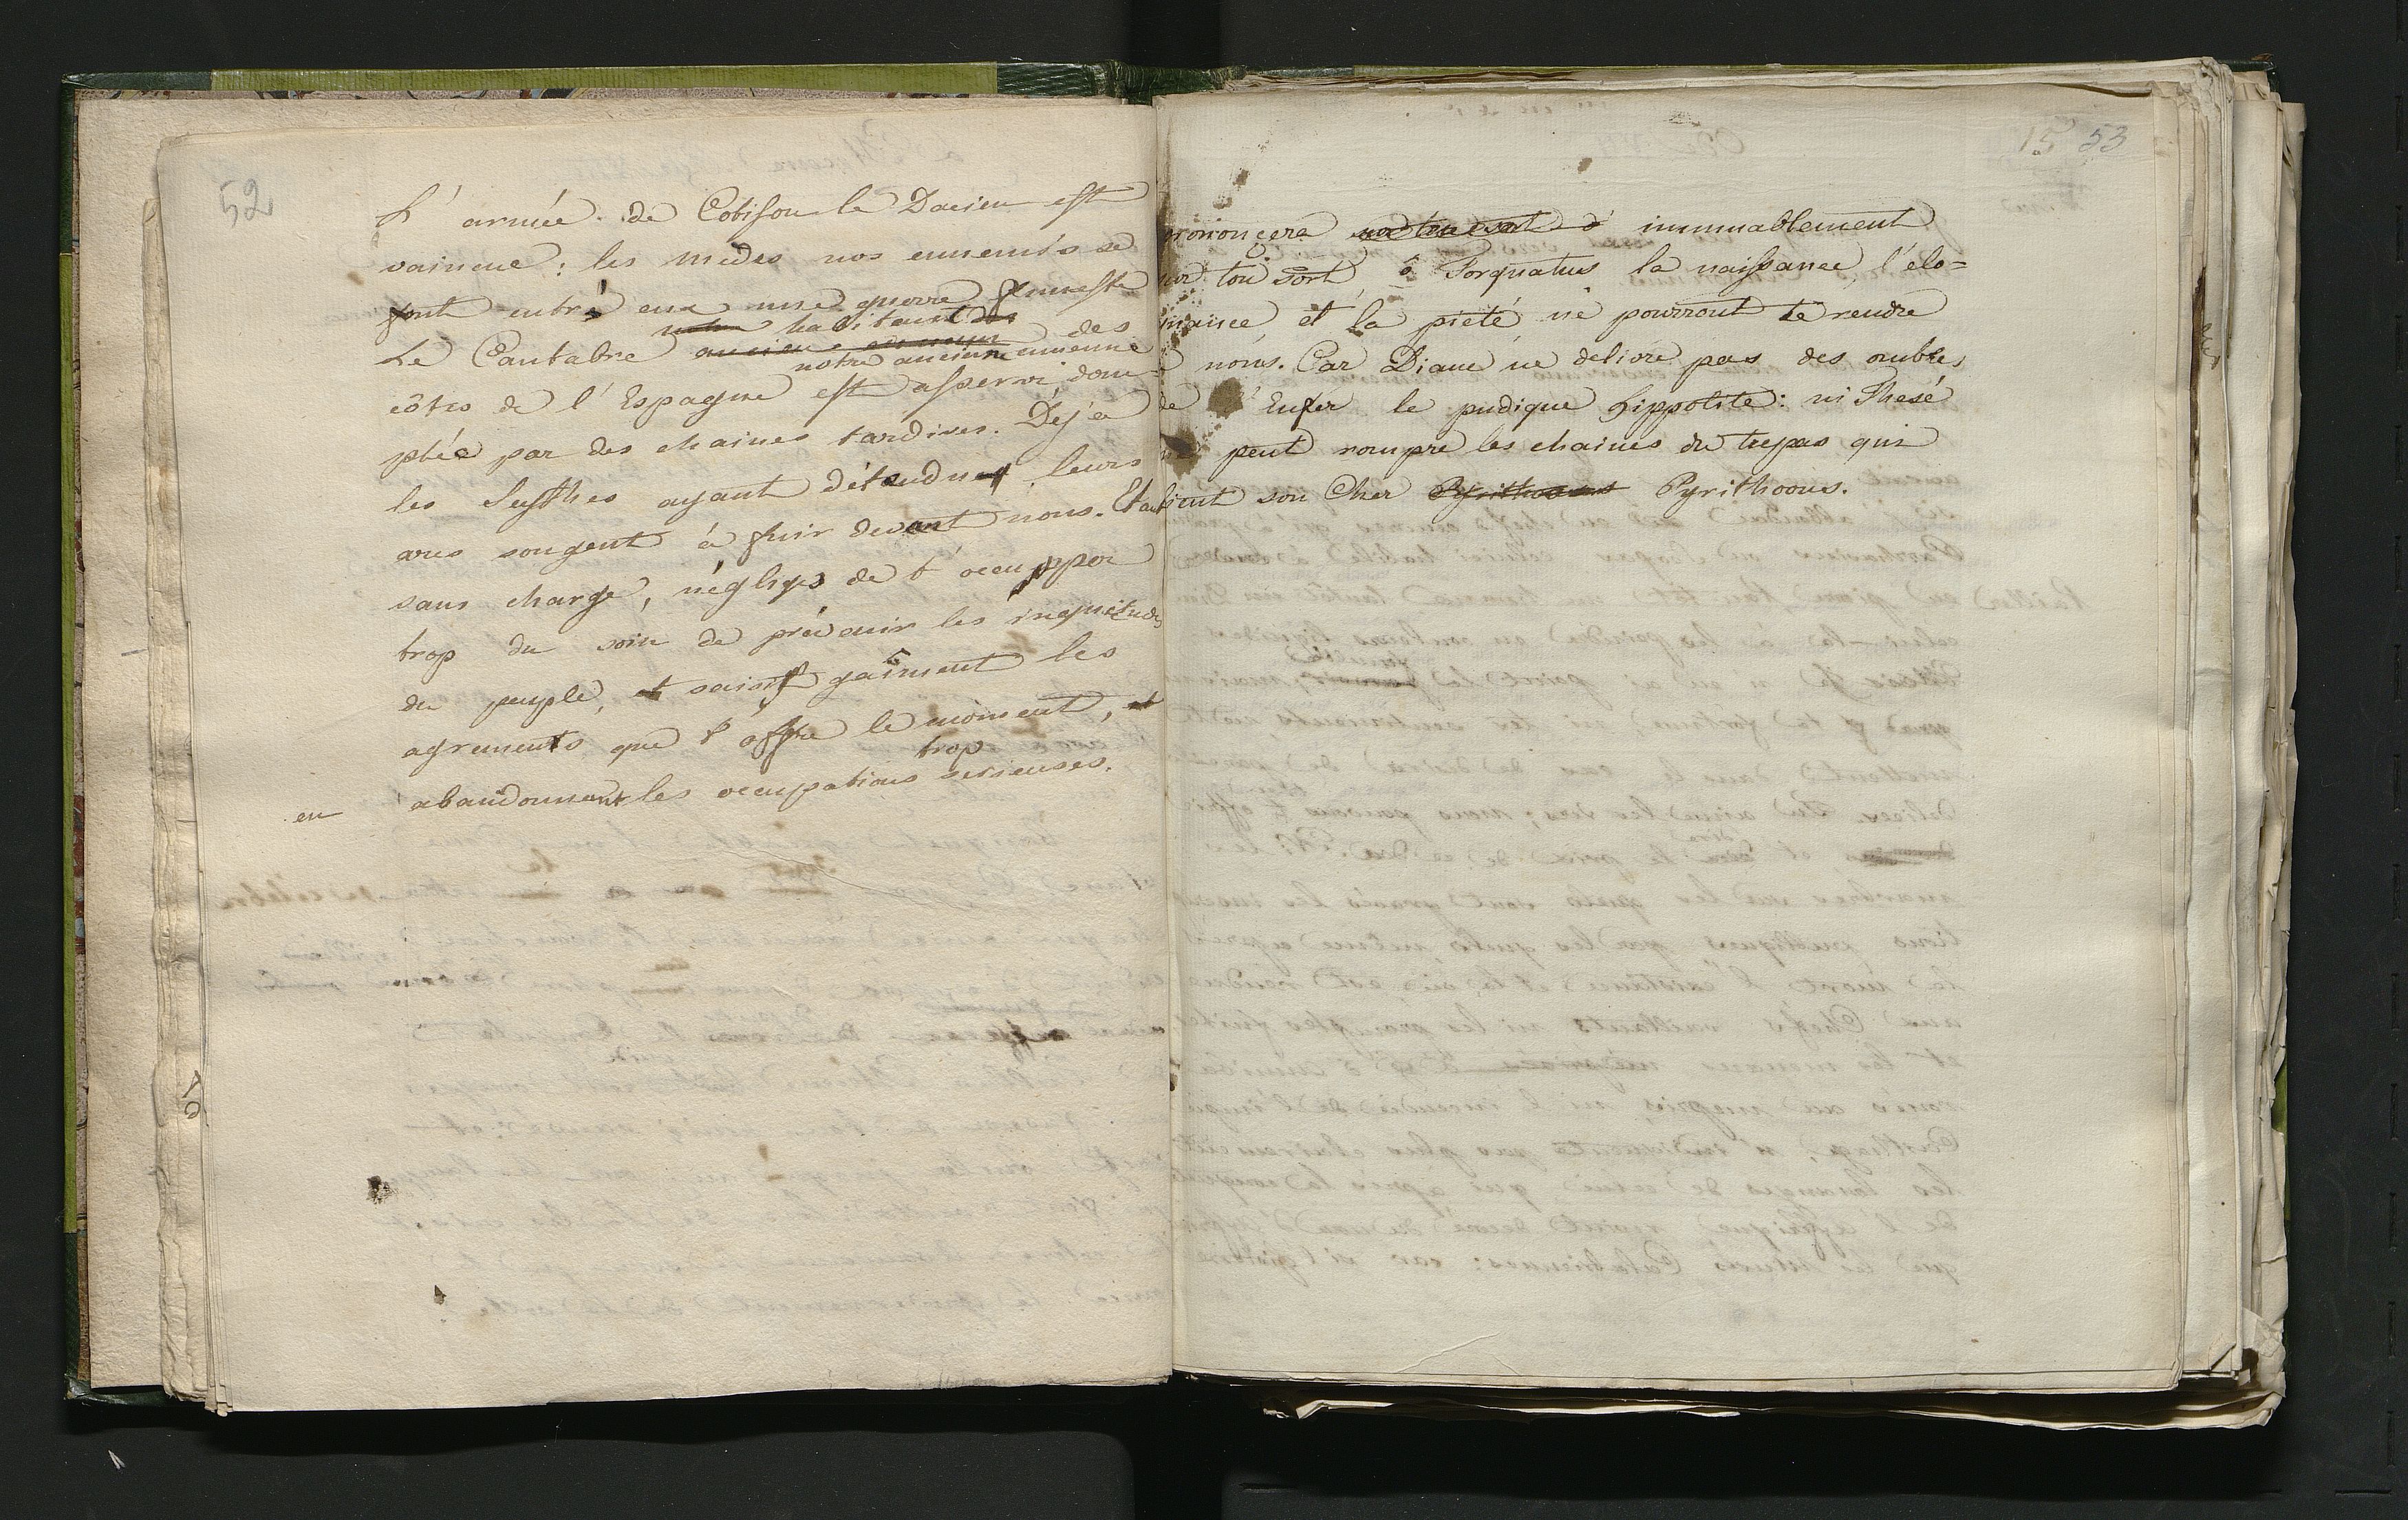 52
L' armée de Cotison le Dacien est
vaincue : les mèdes nos ennemis se
font entre eux une guerre funeste
habitant des
Le Cantabre ancien ennemi des
notre ancienne ennemie
côtes de l' Espagne est asservi, dom-
ptée par des chaines tardives. Déja
les Scythes ayant détendus leurs
arcs songent à fuir devant nous. Etant
sans charge, néglige de t' occuper
trop du soin de prévenir les inquietudes
du peuple, et saisis gaîment les
agrements que t' offre le moment, et
trop
en abandonnant les occupations serieuses.
15 53
prononcera immuablement
sur ton sort, ô Torquatus la naissance, l' élo=
quance et la pieté ne pourront te rendre
à nous. Car Diane ne delivre pas des ombres
de l' Enfer le pudique hippolite : ni Thesé
ne peut rompre les chaines du trepas qui
lient son Cher Pyrithoous Pyrithoous.